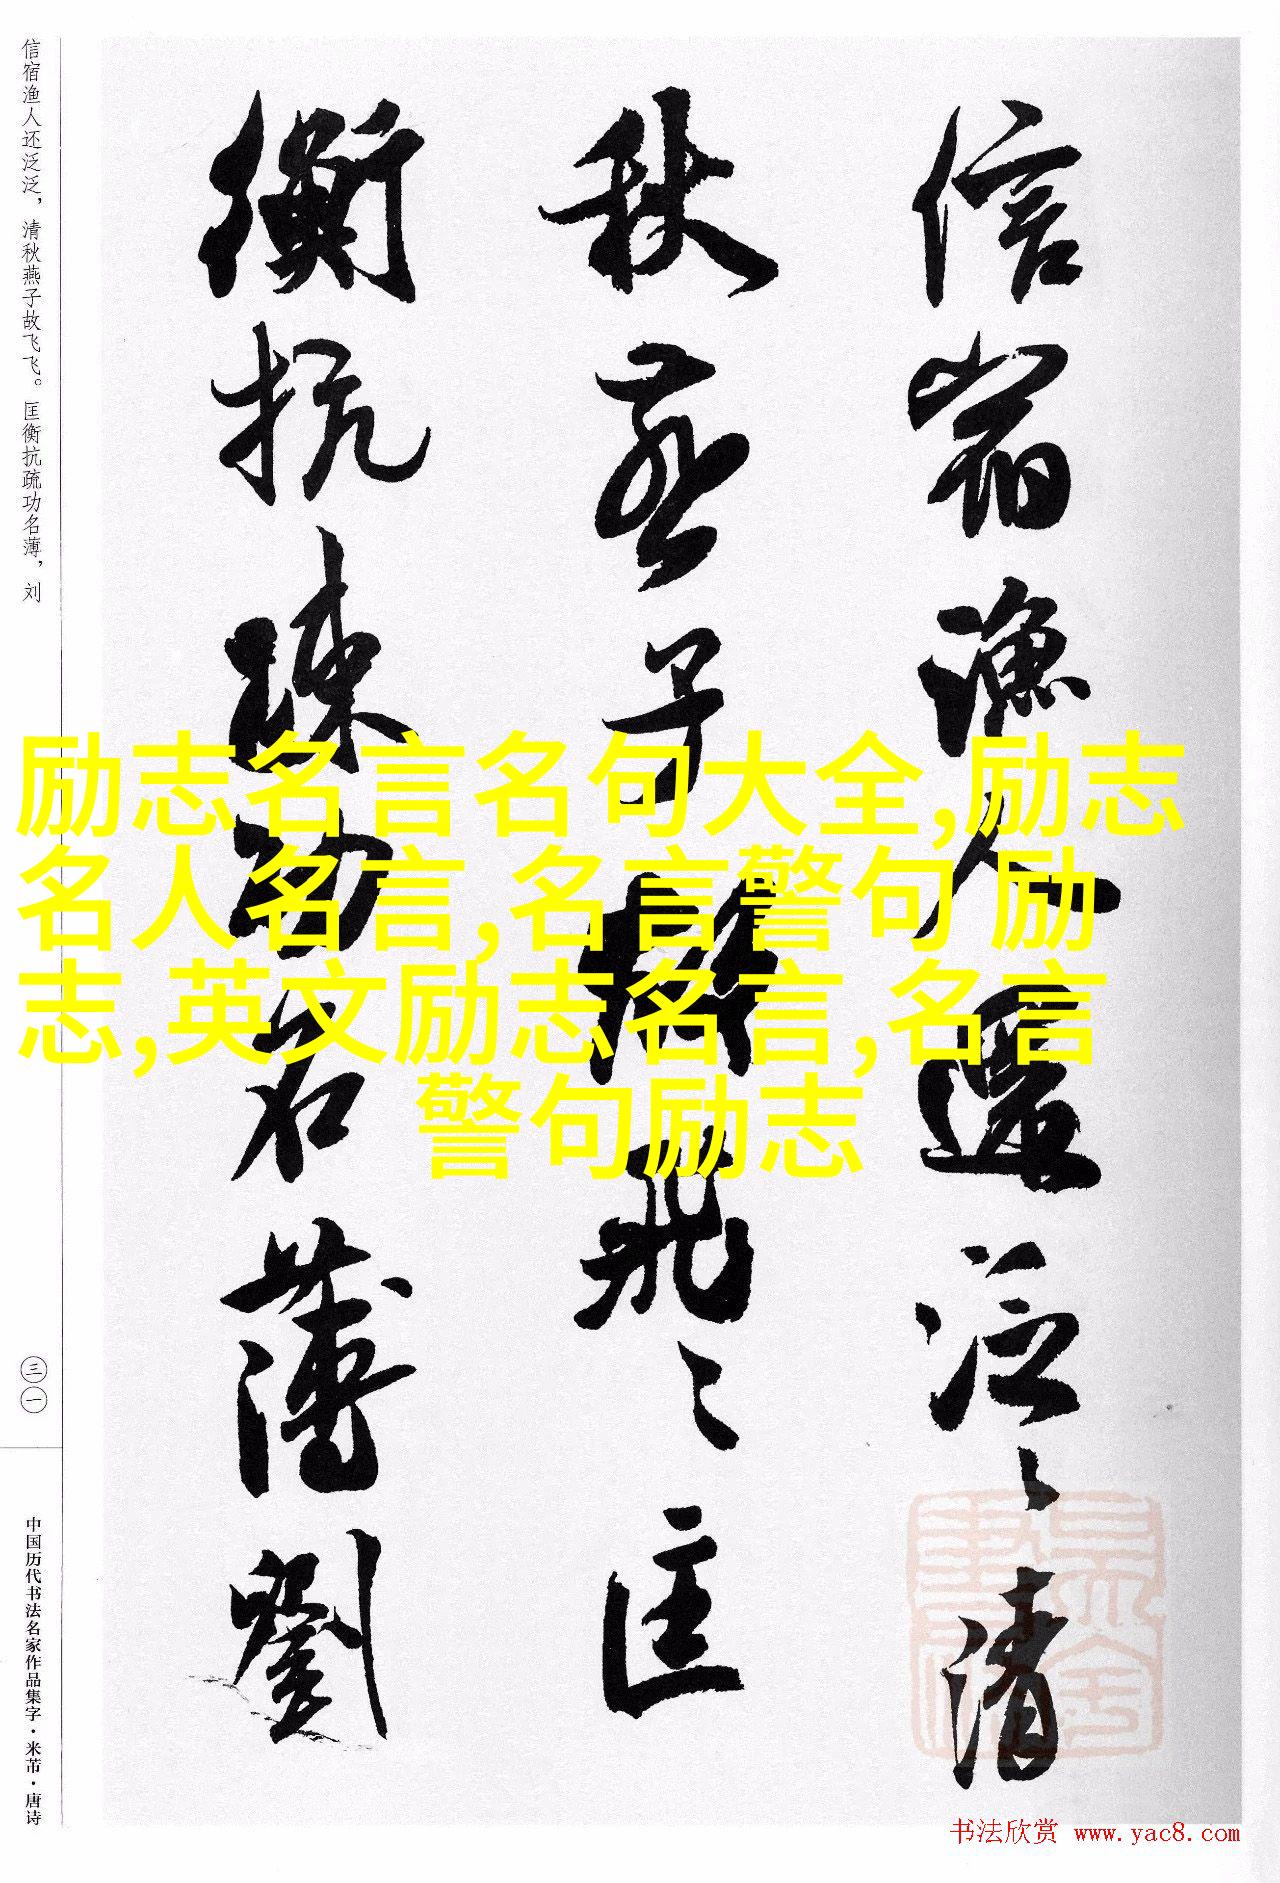 信宿渔人还泛泛，清秋燕子故飞飞。匡衡抗疏功名薄，刘
三一
中国历代书法名家作品集字·米芾·唐诗
信宿渔人还泛〻清
秋燕子故飛〻匡
衡抗疎功名薄劉
励志名言名句大全,励志
名人名言,名言警句 励
志,英文励志名言,名言
警句励志
书法欣赏 www.yac8.com